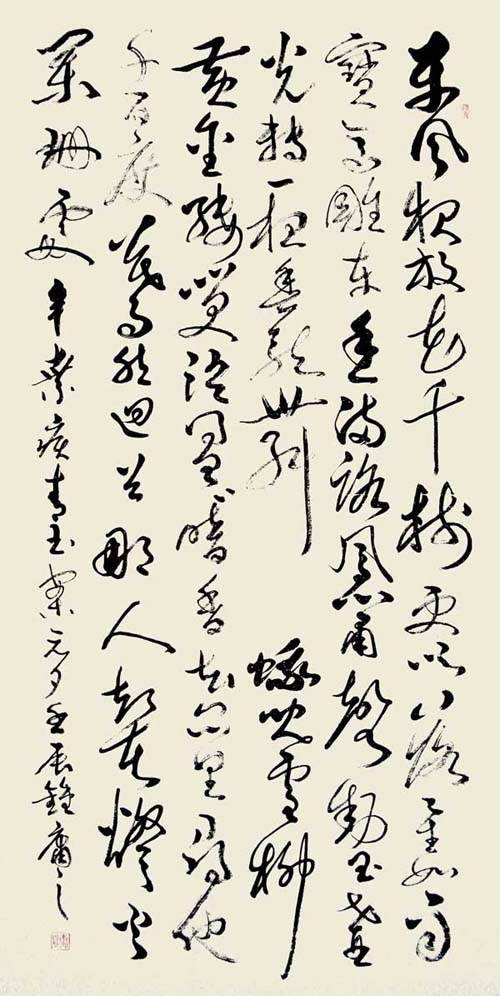 東風夜放花千樹更吹落星如雨
寶馬雕車香滿路鳳簫聲動玉壺
光轉一夜魚龍舞蛾兒雪柳
黃金縷笑語盈盈暗香去眾里尋他
千百度驀然迴首那人卻在燈火
闌珊處辛棄疾青玉案元夕壬辰鐘庸之